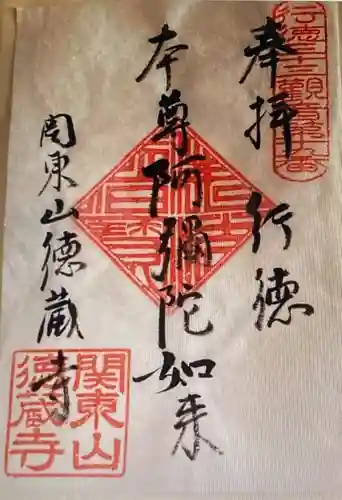 奉拝 行徳
本尊阿彌陀如来
関東山徳蔵寺
行徳三十三観音霊
関東山
徳蔵寺